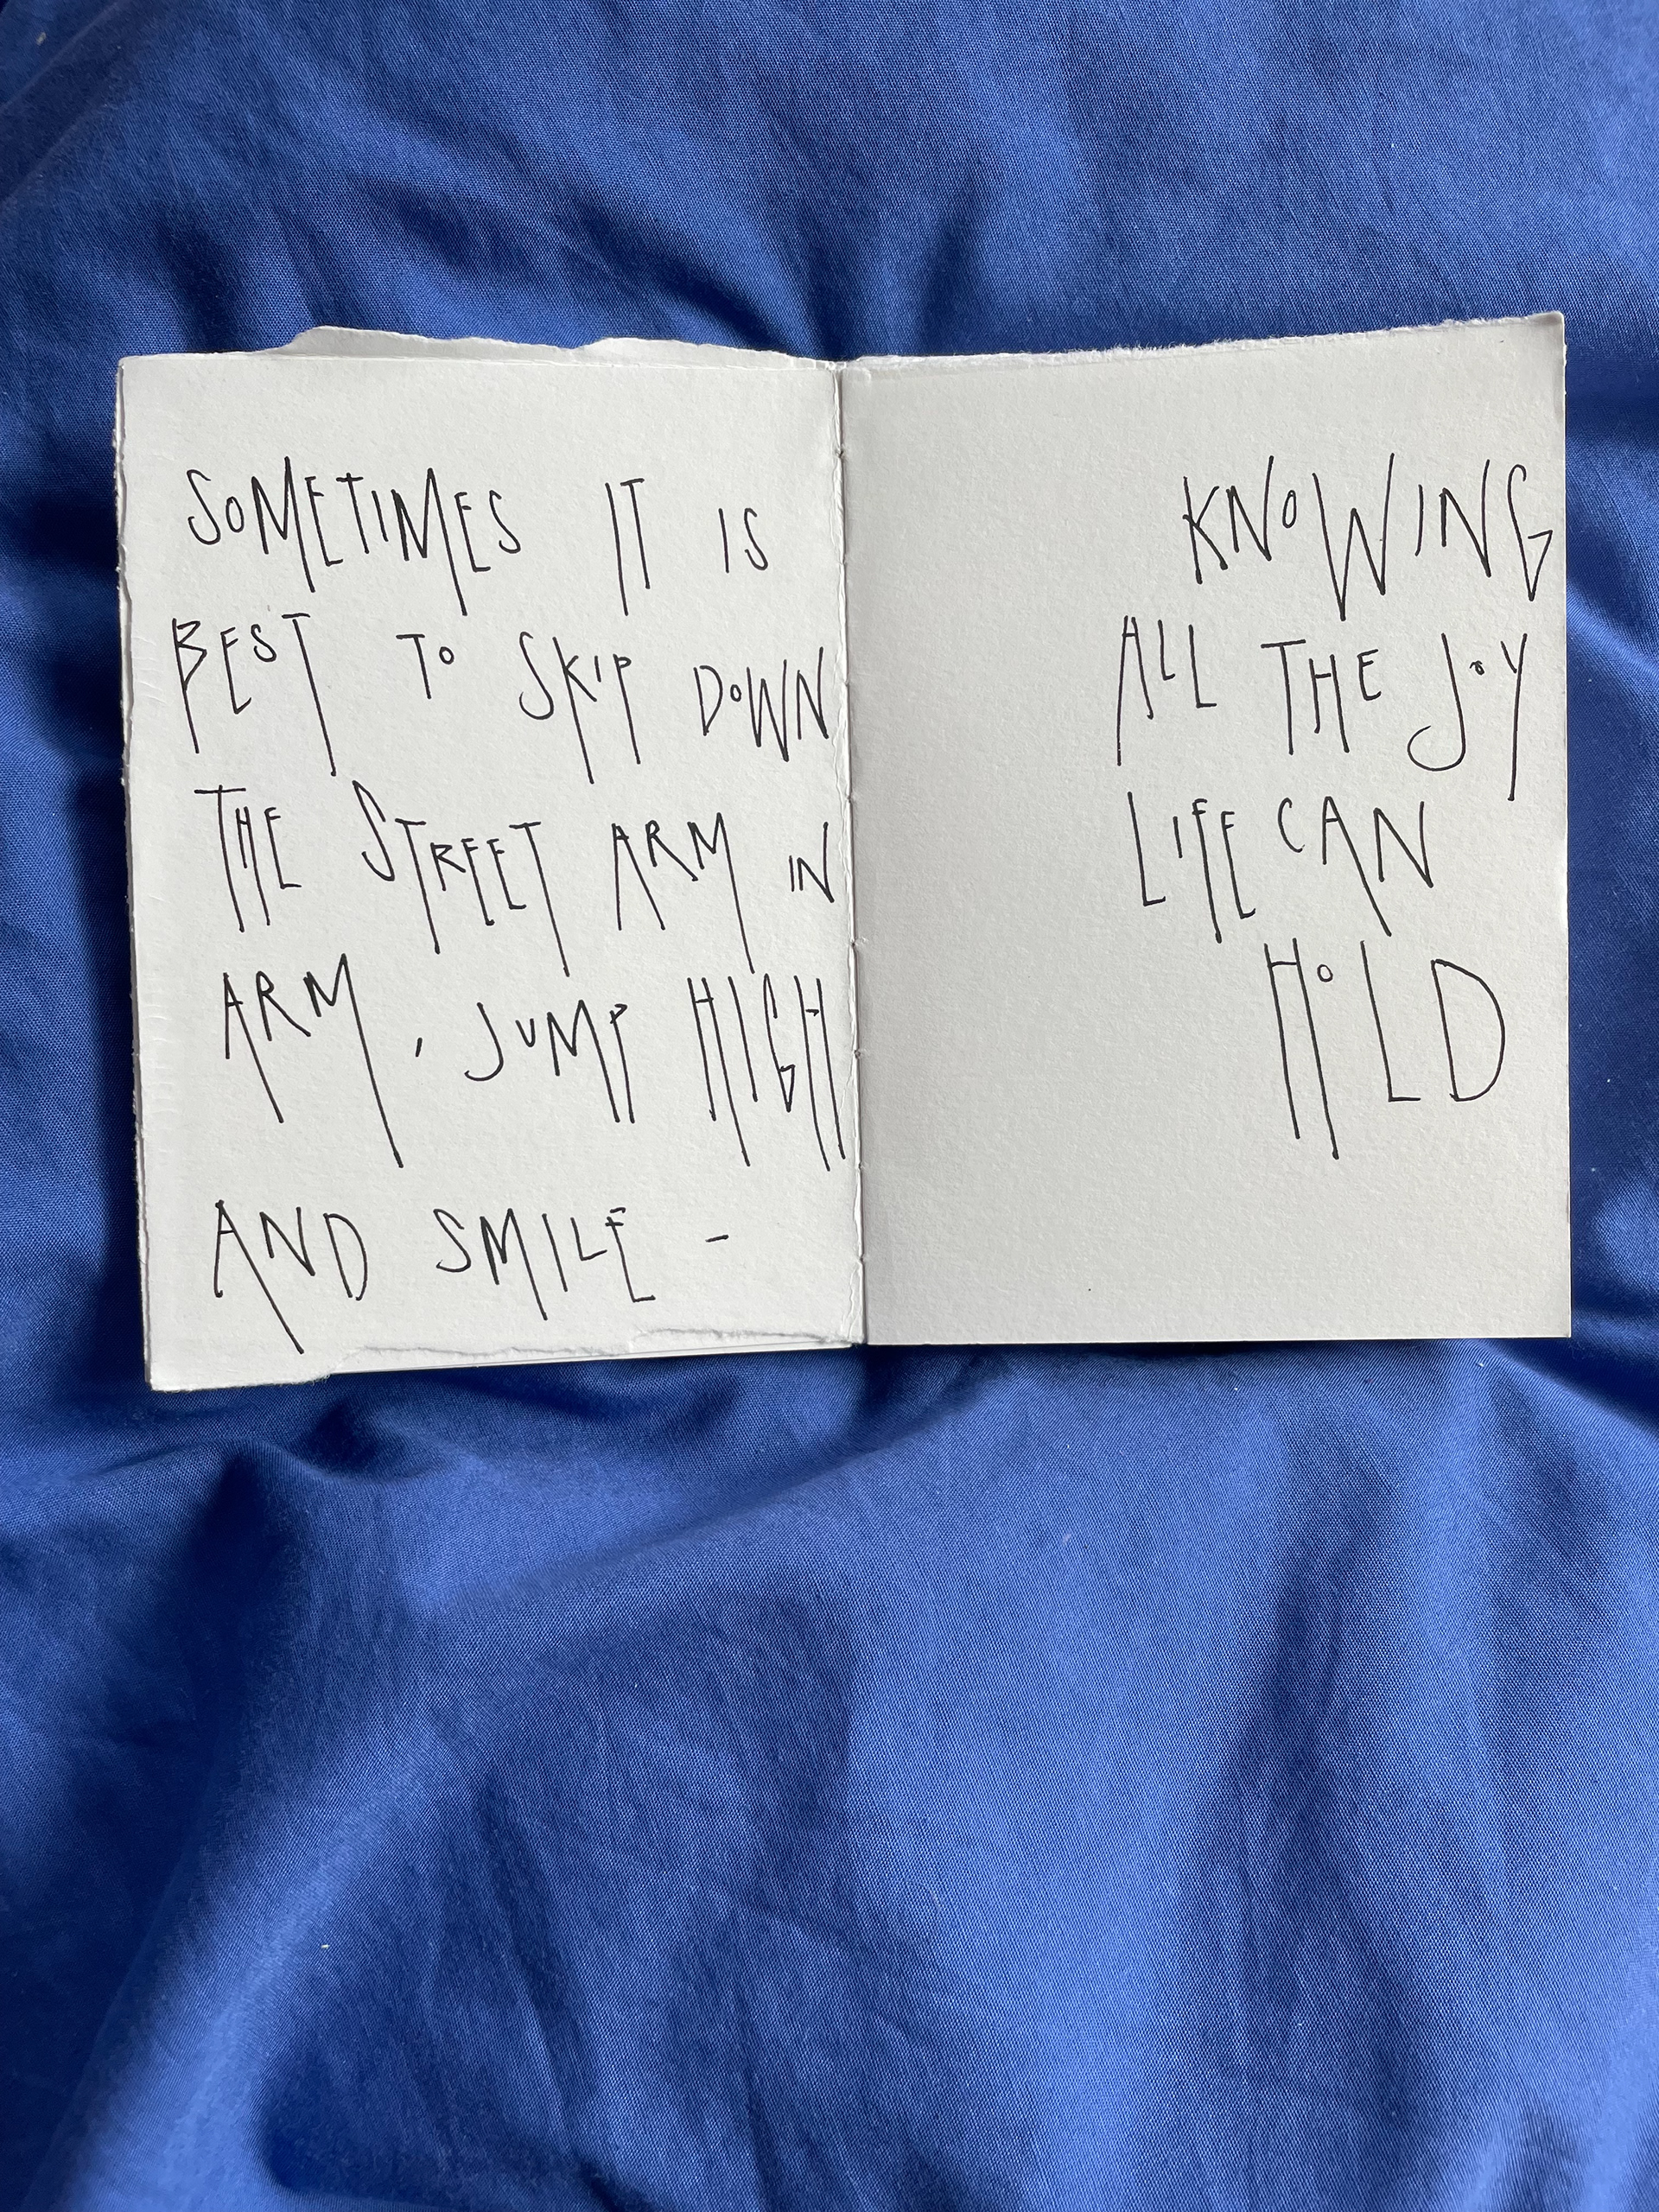 SOMETIMES IT IS
BEST TO SKIP DOWN
THE STREET ARM IN
ARM, JUMP HIGH
AND SMILE -
KNOWING
ALL THE JOY
LIFE CAN
HOLD